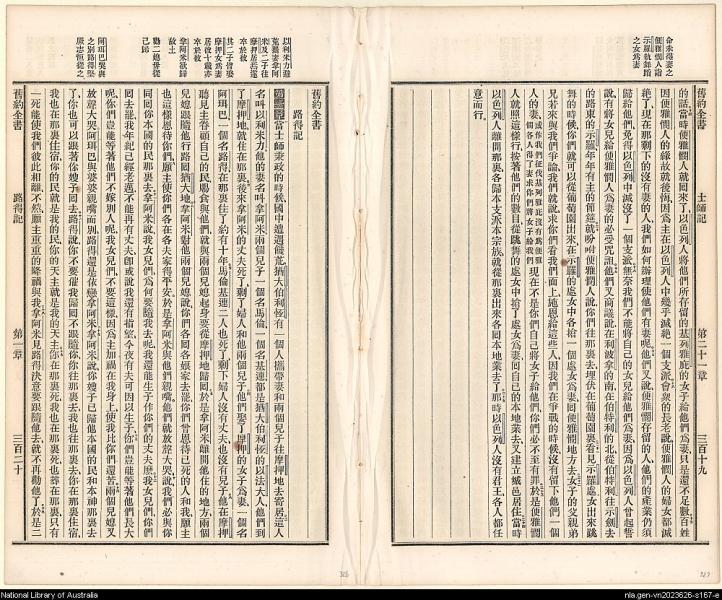 命未得妻之
便雅憫人詣
示羅執舞蹈
之女爲妻
舊約全書
士師記
第二十一章
三百十九
的話當時便雅憫人就回來了以色列人將他們所存留的基列雅庇的女子給他們爲妻只是還不足數百姓
因便雅憫人的緣故就後悔因爲主在以色列人中幾乎滅絕一個支派會衆的長老說便雅憫人的婦女都滅
絕了現在那剩下的沒有妻的人我們如何辦理使他們有妻呢他們又說便雅憫存留的人他們的產業仍須
歸給他們免得以色列中滅沒了一個支派無奈我們不能將自己的女兒給他們爲妻因爲以色列人曾起誓
說有將女兒給便雅憫人爲妻的必受咒詛他們又商議說在利波拿的南在伯特利的北從伯特利往示劍去
的路東的示羅年年有主的節筵就吩咐便雅憫人說你們往那裏去埋伏在葡萄園裏看見示羅處女出來跳
舞的時候你們就可以從葡萄園出來在示羅的處女中各搶一個處女爲妻回便雅憫地方去女子的父親弟
兄若來與我們爭論我們就說求你們看我們面上施恩給這些人因我們在爭戰的時候沒有留下他們一個
人的妻
現在不是你們自己將女子給他們你們必不至有罪於是便雅憫
人就照這樣行按著他們的數目從跳舞的處女中搶了處女爲妻回自己的本地業去又建立城邑居住當時
以色列人離開那裏各歸本支派本宗族就從那裏出來各回本地業去了那時以色列人沒有君王各人都任
意而行
舊約全書
路得記
第一章
三百二十
以利米力避
荒攜妻拿阿
米及二子往
摩押居焉遂
卒於彼
其二子皆娶
摩押女爲妻
居彼十載亦
卒於彼
拿阿米欲歸
故土
勸二媳毋從
己歸
阿珥巴與與
之別路得堅
厥志恒從之
路得記
第一章當士師秉政的時候國中遭遇饑荒猶大伯利恆有一個人攜帶妻和兩個兒子往摩押地去寄居這人
名叫以利米力他的妻名叫拿阿米兩個兒子一個名馬倫一個名基連都是猶大伯利恆的以法大人他們到
了摩押地就住在那裏後來拿阿米的丈夫死了剩了婦人和他兩個兒子他們娶了摩押的女子爲妻一個名
阿珥巴一個名路得在那裏住了約有十年馬倫基連二人也死了剩下婦人沒有丈夫也沒有兒子他在摩押
聽見主眷顧自己的民賜食與他們就與兩個兒媳起身要從摩押地歸回於是拿阿米離開他住的地方兩個
兒媳跟隨他行路回猶大地拿阿米對他兩個兒媳說你們各回各娘家去罷你們曾恩待已死的人和我願主
也這樣恩待你們願主使你們各在各夫家得平安於是拿阿米與他們親嘴他們就放聲大哭說我們必與你
同回你本國的民那裏去拿阿米說我女兒們爲何要隨我去呢我還能生子作你們的丈夫麼我女兒們你們
回去罷我年紀已經老邁不能再有丈夫卽或說我還有指望今夜有夫可因以生子你們豈能等著他們長大
呢你們豈能等著他們不嫁別人呢我女兒們不要這樣因爲主加禍在我身上使我比你們還苦兩個兒媳又
放聲大哭阿珥巴與婆婆親嘴而別路得還是依戀拿阿米拿阿米說你嫂子已歸他本國的民和本神那裏去
了你也可以跟著你嫂子回去路得說你不要催我歸回不跟隨你你往那裏去我也往那裏去你在那裏住宿
我也在那裏住宿你的民就是我的民你的天主就是我的天主你在那裏死我也在那裏死也葬在那裏只有
一死能使我們彼此相離不然願主重重的降禍與我拿阿米見路得決意要跟隨他去就不再勸他了於是二
National Library of Australia
nla.gen-vn2023626-s167-e